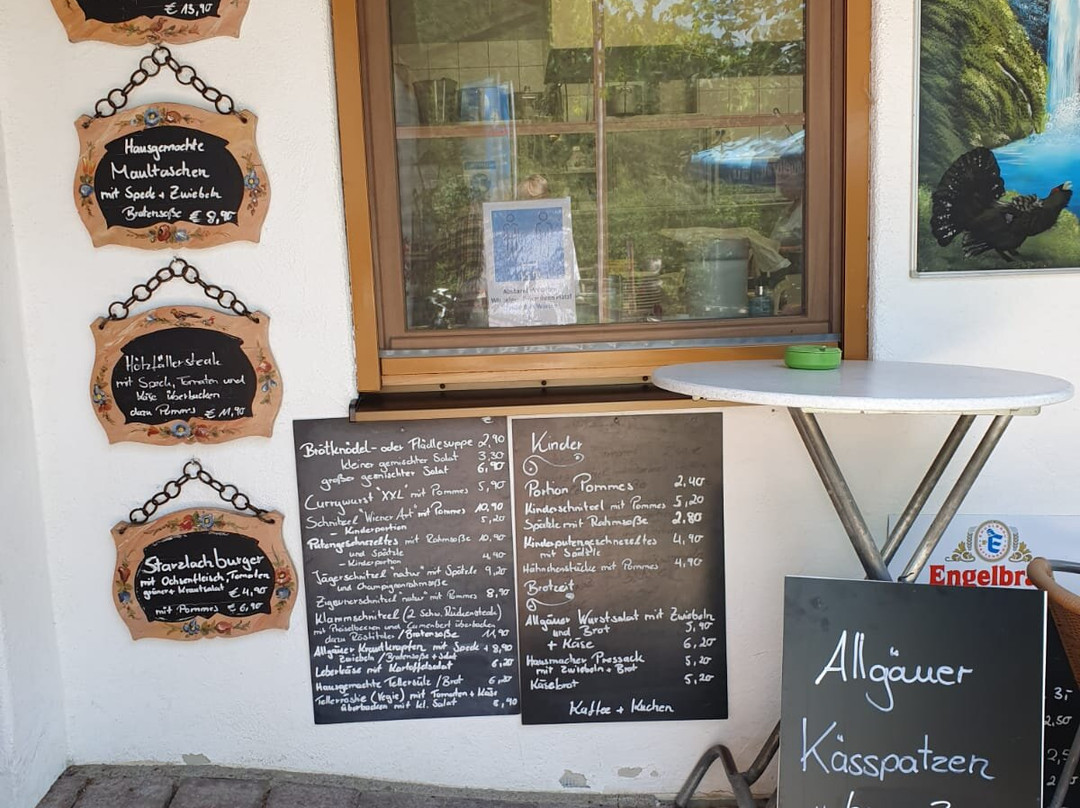 € 13,90
Hausgemachte
Maultaschen
mit Speck + Zwiebeln
Bratensoße € 8,90
Holzfällersteak
mit Speck, Tomaten und
Käse überbacken
dazu Pommes € 11,90
Starzlachburger
mit Ochsenfleisch, Tomaten
grüner + Krautsalat € 4,90
mit Pommes € 6,90
€
Brotknödel- oder Flädlesuppe 2,90
kleiner gemischter Salat 3,30
großer gemischter Salat 6,90
Currywurst "XXL" mit Pommes 5,90
Schnitzel "Wiener Art" mit Pommes 10,90
- Kinderportion 5,20
Putengeschnetzeltes mit Rahmsoße 10,90
und Spätzle
- Kinderportion 4,90
Jägerschnitzel "natur" mit Spätzle 9,20
und Champignonrahmsoße
Zigeunerschnitzel "natur" mit Pommes 8,90
Klammschnitzel (2 Schw. Rückensteak)
mit Preiselbeeren und Camembert überbacken
dazu Röstitaler / Bratensoße 11,90
Allgäuer Krautkrapfen mit Speck + 8,90
Zwiebeln / Bratensoße + Salat
Leberkäse mit Kartoffelsalat 6,20
Hausgemachte Tellersülze / Brot 6,20
Tellerröstie (Vegie) mit Tomaten + Käse
überbacken mit kl. Salat 8,40
Kinder
Portion Pommes 2,40
Kinderschnitzel mit Pommes 5,20
Spätzle mit Rahmsoße 2,80
Kinderputengeschnetzeltes 4,90
mit Spätzle
Hähnchenstücke mit Pommes 4,90
Brotzeit
Allgäuer Wurstsalat mit Zwiebeln
und Brot 5,90
+ Käse 6,20
Hausmacher Pressack 5,20
mit Zwiebeln + Brot
Käsebrot 5,20
Kaffee + Kuchen
Engelbr
Allgäuer
Kässpatzen
3,-
2,50